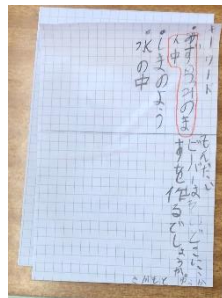 ワード
・みずうみのま
ん中
・しまのよう
・水の中
もんだい
ビーバーは
すを作るでしょうか。